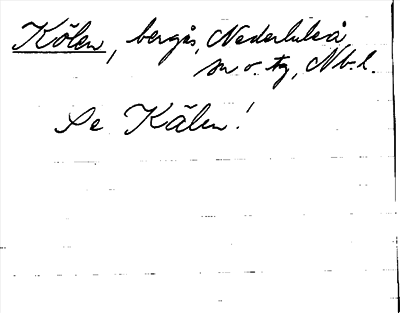 Kölen, bergås, Nederluleå
sn o. tg, Nb.l.
Se Kälen!